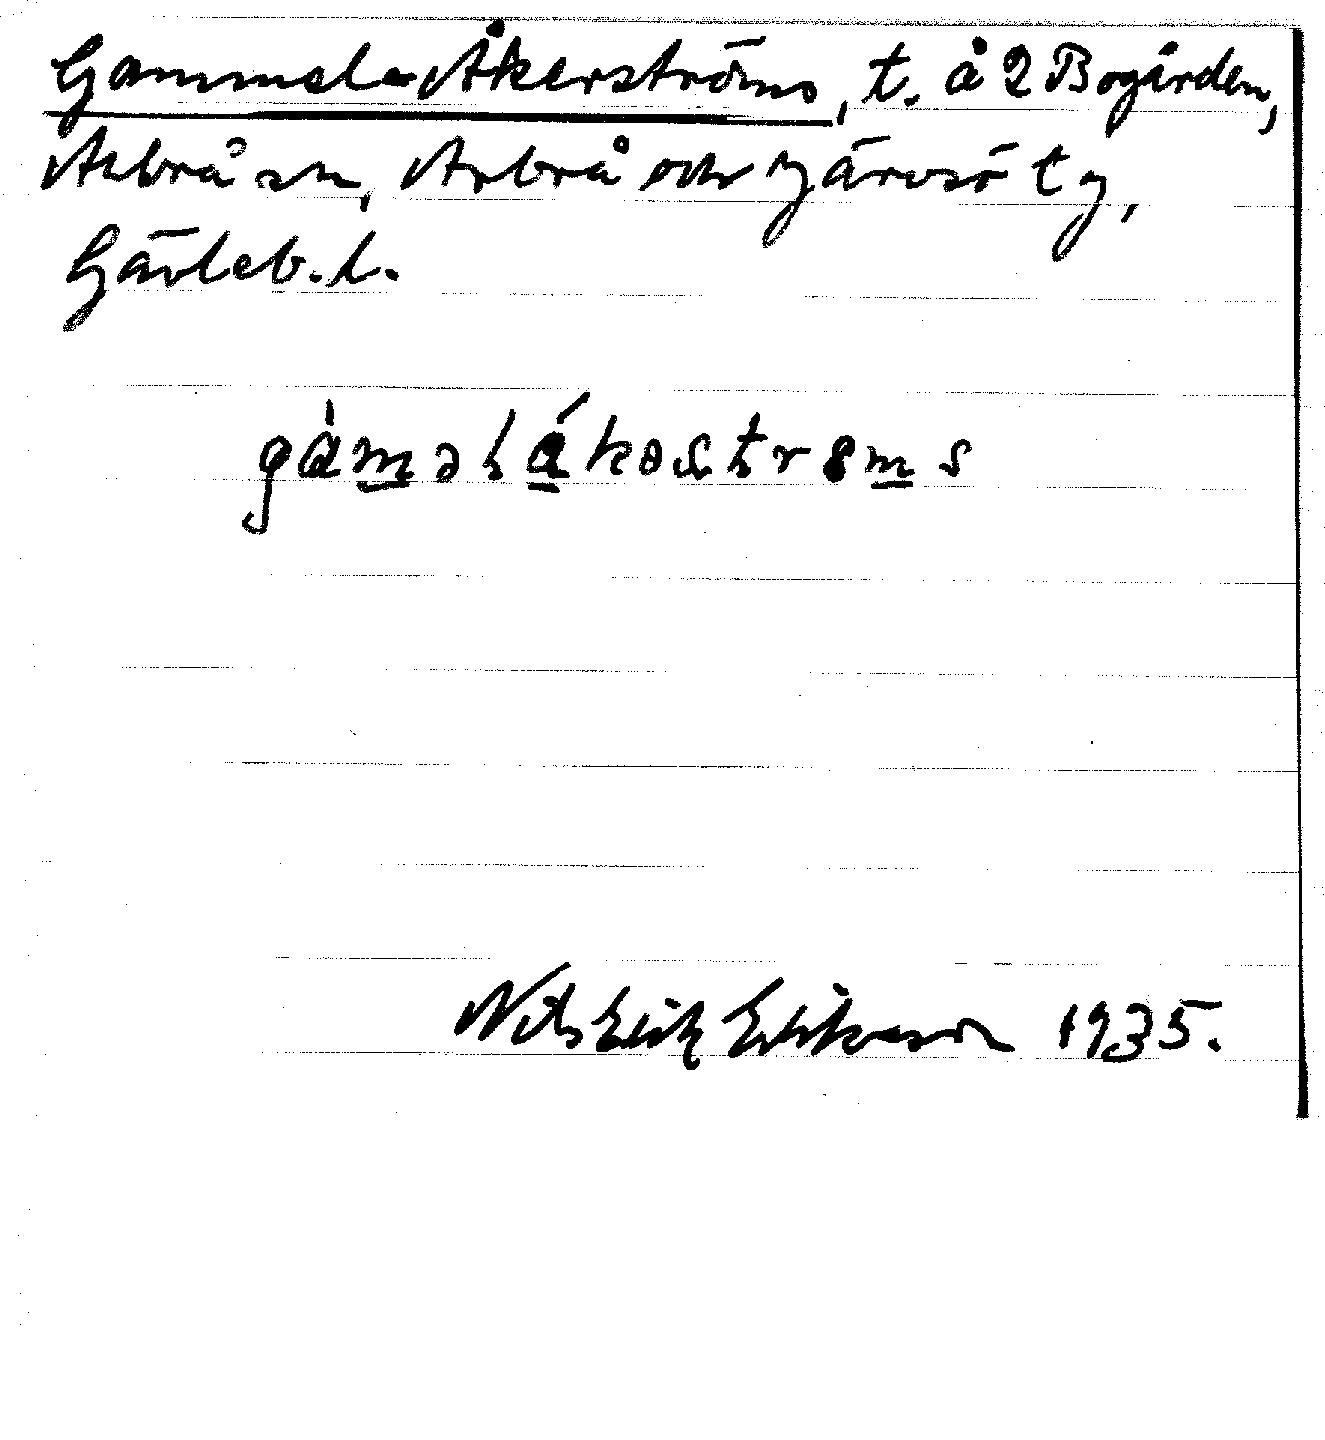 Gammel-Åkerströms, t. å 2 Bogården,
Arbrå sn, Arbrå och Järvsö tg,
Gävleb. l.
gàməlákostrøms
Nils Erik Eriksson 1935.